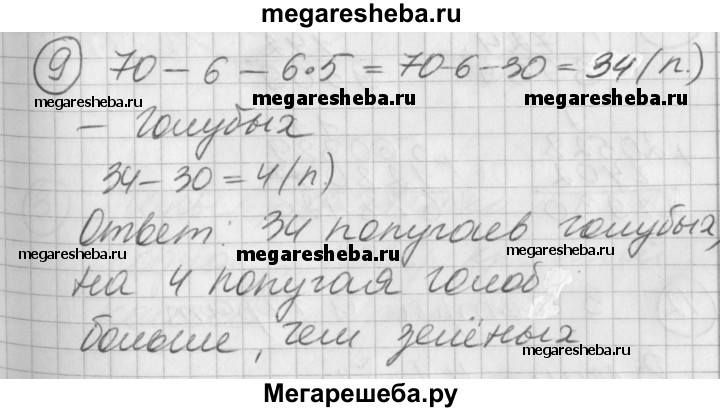 megaresheba.ru
9 70 - 6 - 6·5 = 70-6-30 = 34 (п.)
megaresheba.ru megaresheba.ru megaresheba.ru
- голубых
34 - 30 = 4 (п)
megaresheba.ru
Ответ: 34 попугаев голубых,
megaresheba.ru megaresheba.ru megaresheba.ru
на 4 попугая голоб
больше, чем зелёных
megaresheba.ru
Мегарешеба.ру